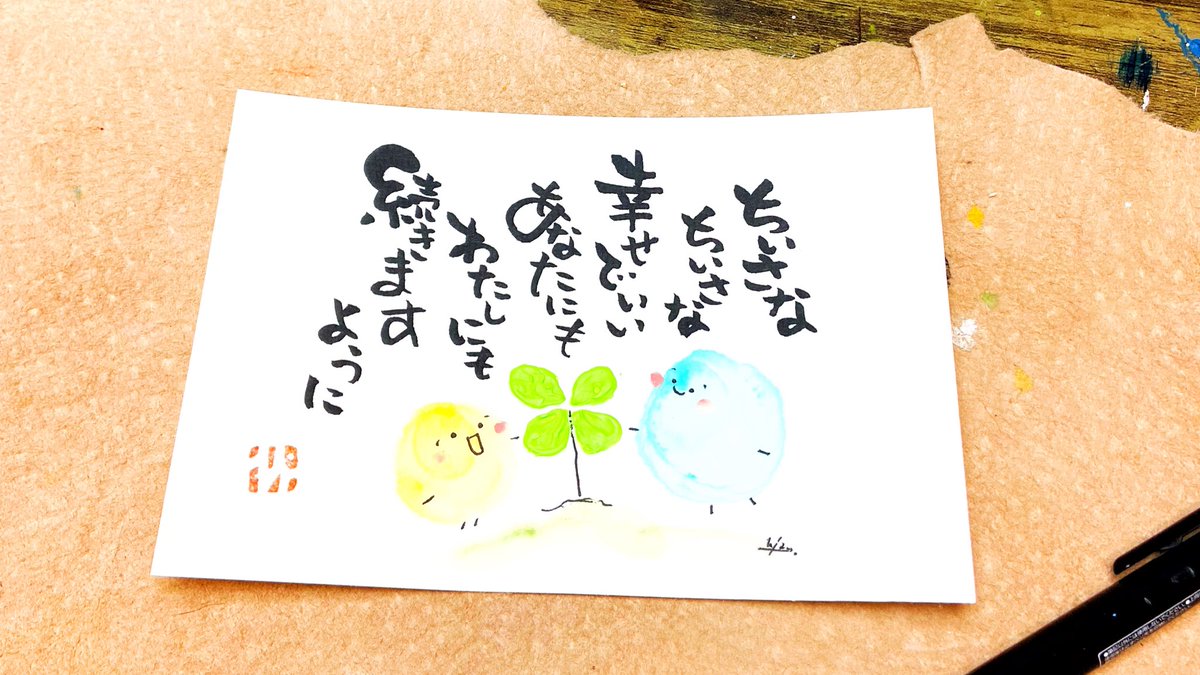 ちいさな
ちいさな
幸せでいい
あなたにも
わたしにも
続きます
ように